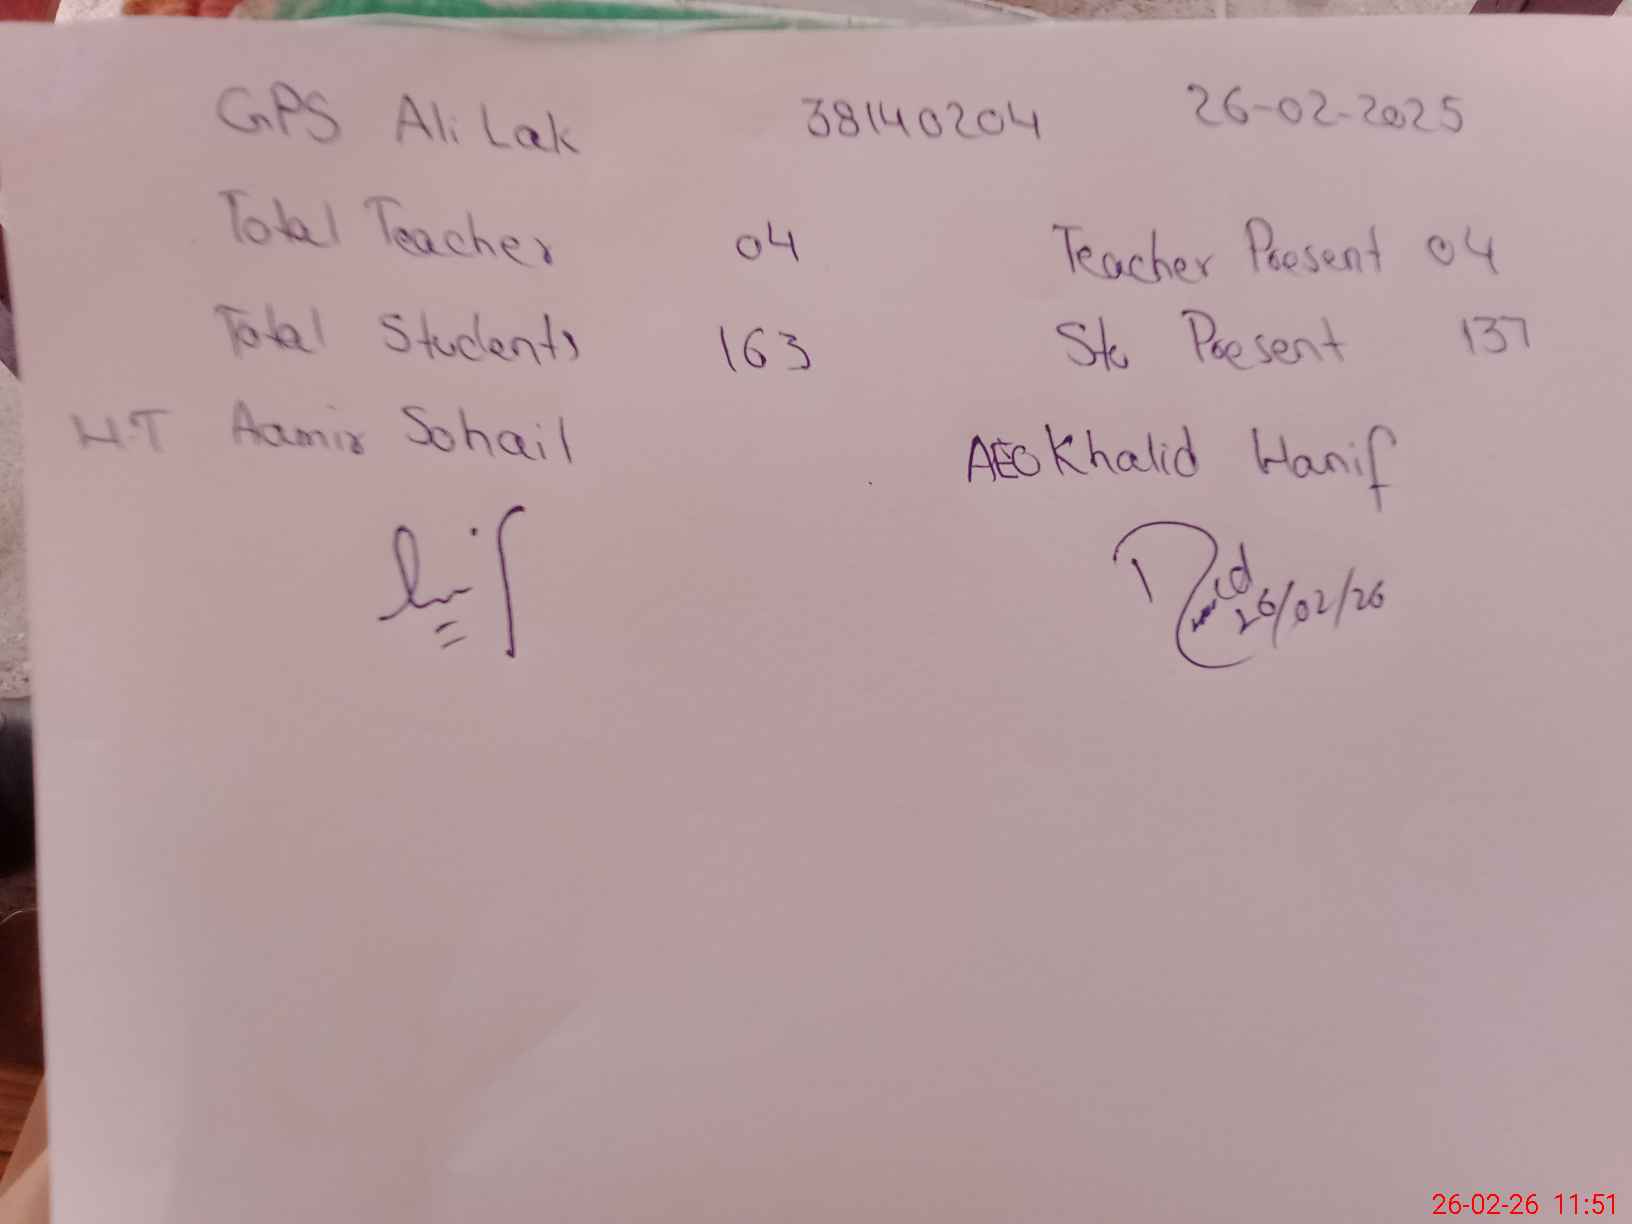 GPS Ali Lak 38140204 26-02-2025
Total Teacher 04 Teacher Present 04
Total Students 163 Stu Present 137
H.T Aamir Sohail AEO Khalid Hanif
26/02/26
26-02-26 11:51